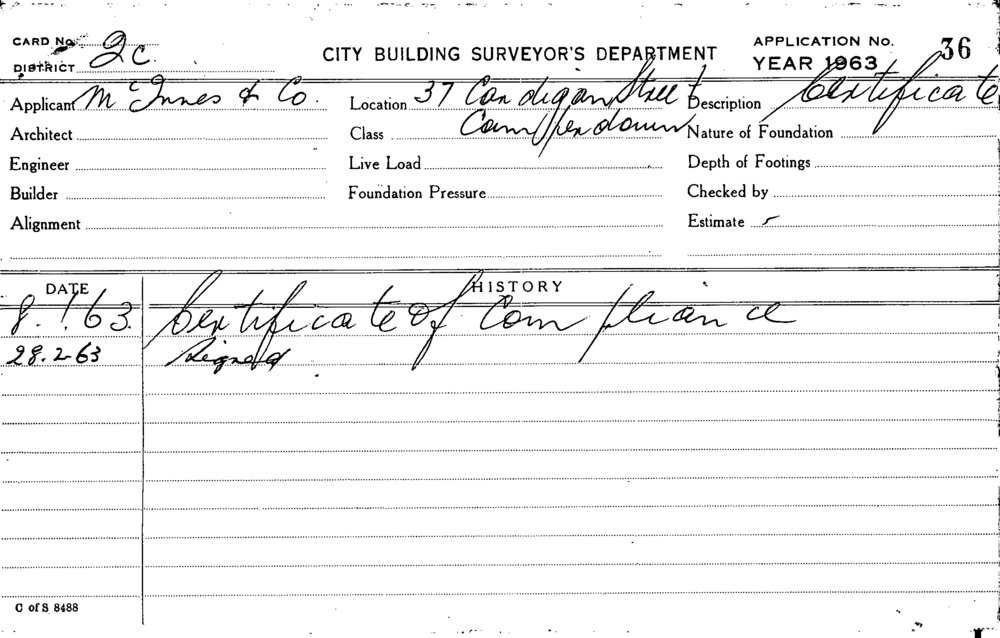 CARD No. 2c. CITY BUILDING SURVEYOR'S DEPARTMENT APPLICATION No. 36
DISTRICT YEAR 1963
Applicant McInnes & Co. Location 37 Cardigan Street Description Certificate
Architect Class Camperdown Nature of Foundation
Engineer Live Load Depth of Footings
Builder Foundation Pressure Checked by
Alignment Estimate
DATE HISTORY
8.1.63. Certificate of Compliance
28.2.63 Signed
C of S 8488